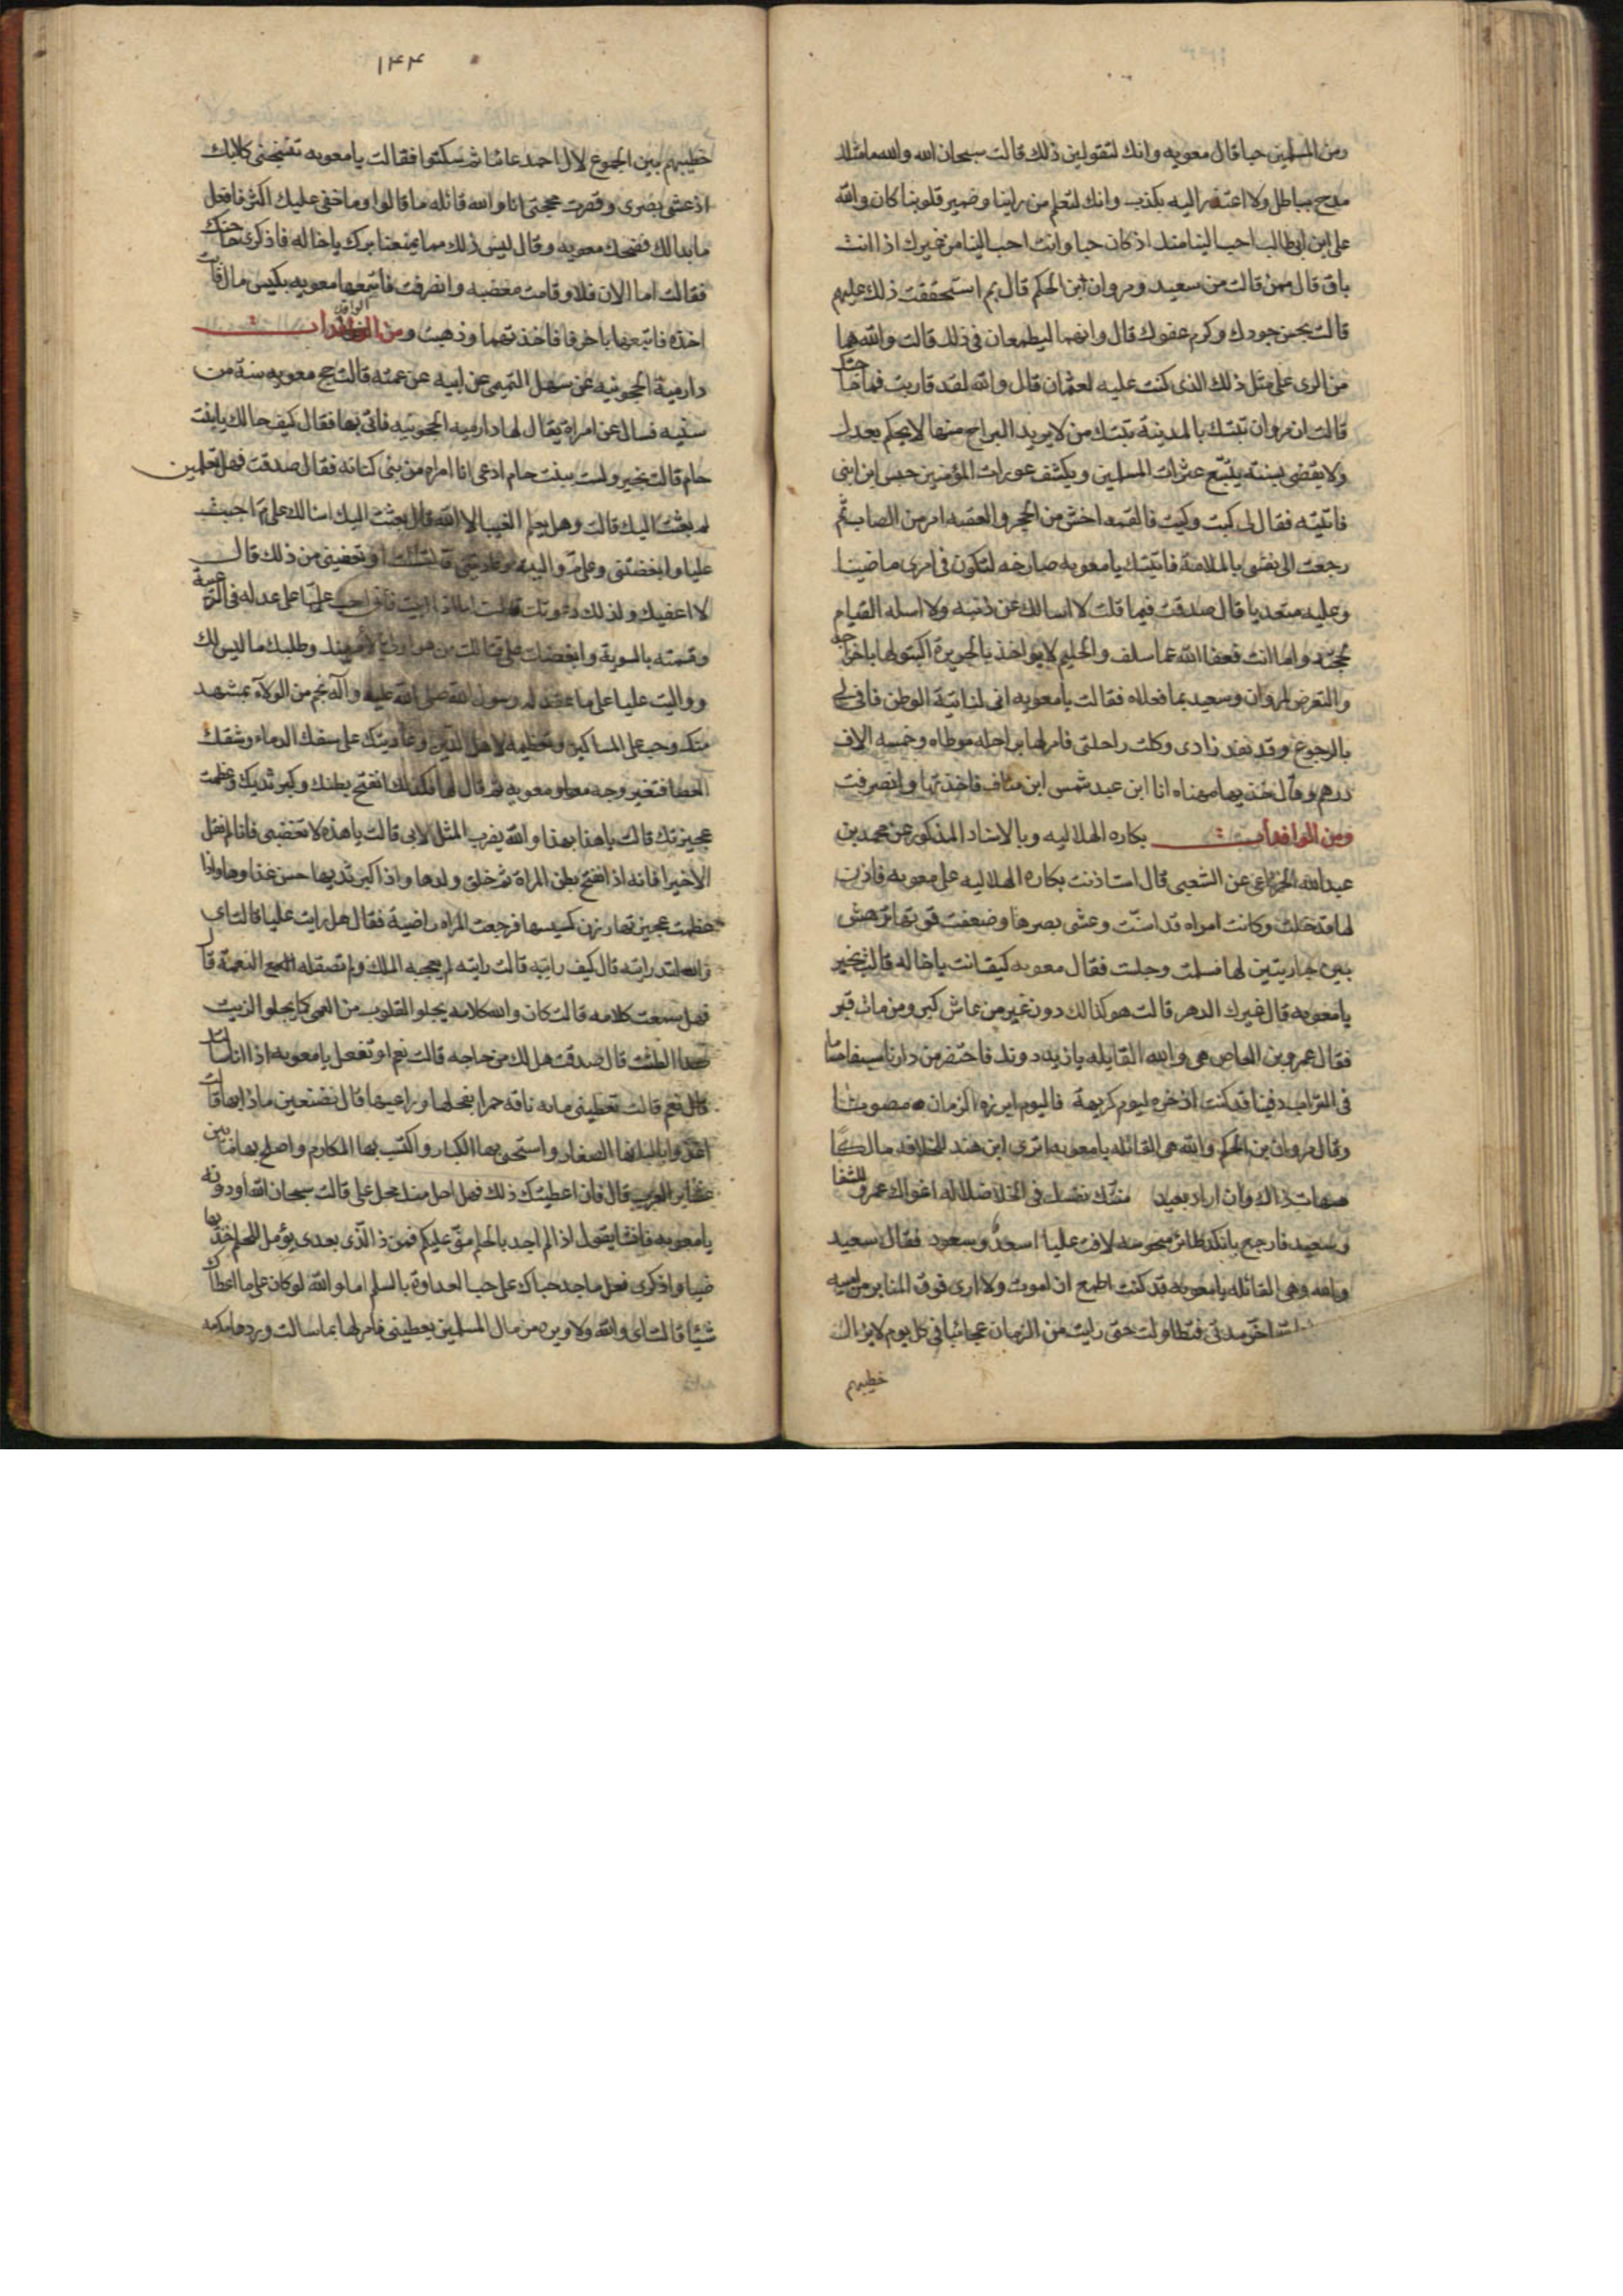 ومن المسلمين حبا قال معويه وانك لتقولين ذلك قالت سبحان الله والله ما مثلك
مدح بباطل ولا اعتذر اليه بكذب وانك لتعلم من راينا وضمير قلوبنا كان والله
علي ابن ابي طالب احب الينا منك اذ كان حيا وانت احب الينا من غيرك اذا انت
باق قال ممن قالت من سعيد ومروان ابن الحكم قال بم استحققت ذلك عليهم
قالت بحسن جودك وكرم عفوك قال وانهما ليطمعان في ذلك قالت والله هما
من الراى على مثل ذلك الذى كنت عليه لعثمان قال والله لقد قاربت فما حاجتك
قالت ان مروان تبنك بالمدينة تبنك من لا يريد البراح منها لا يحكم بعدل
ولا يقضى بسنة يتبع عثرات المسلمين ويكشف عورات المؤمنين حبس ابن ابنى
فاتيته فقال لى كيت وكيت فالقمته اخشن من الحجر والعقته امر من الصاب ثم
رجعت الى نفسى بالملامة فاتيتك يا معويه صارخه لتكون فى امرى ماضيا
وعليه متعديا قال صدقت فيما قلت لا اسالك عن ذنبه ولا اسله القيام
بحجته واما انت فعفا الله عما سلف والحليم لا يواخذ بالجريرة اكتبوا لها باخراجه
والتعرض لمروان وسعيد بما فعلاه فقالت يا معويه انى لنائية الوطن فانى لى
بالرجوع وقد نفد زادى وكلت راحلتى فامر لها براحله موطاه وخمسه الاف
درهم وقال خذيها مهناه انا ابن عبد شمس ابن مناف فاخذتها وانصرفت
ومن الوافدات بكاره الهلاليه وبالاسناد المذكور عن محمد بن
عبد الله الخزاعى عن الشعبى قال استاذنت بكاره الهلاليه على معويه فاذن
لها فدخلت وكانت امراه قد اسنت وعشى بصرها وضعفت قوتها ترعش
بين جاريتين لها فسلمت وجلست فقال معويه كيف انت يا خاله قالت بخير
يا معويه قال غيرك الدهر قالت هو كذالك دون غير من عاش كبر ومن مات قبر
فقال عمرو بن العاص هى والله القايله يا زيد دونك فاحتفر من دارنا سيفا حساما
فى التراب دفينا قد كنت اذخره ليوم كريهة فاليوم ابرزه الزمان مصونا
وقال مروان بن الحكم والله هى القائله يا معويه اترى ابن هند للخلافه مالكا
هيهات ذاك وان اراد بعيد منتك نفسك فى الخلا ضلاله اغواك عمرو للشقا
وسعيد فارجع بانكد طائر منحوسه لاقت عليا اسعد وسعود فقال سعيد
والله وهى القائله يا معويه قد كنت اطمع ان اموت ولا ارى فوق المنابر من اميه
اخر مدتى فتطاولت حتى رايت من الزمان عجائبا فى كل يوم لا يزال
خطيبهم
١٤٤
خطيبهم بين الجموع لال احمد عائبا ثم سكتوا فقالت يا معويه تنبحنى كلابك
اذ عشى بصرى وقصرت حجتى انا والله قائله ما قالوا وما خفى عليك اكثر فافعل
ما بدا لك فضحك معويه وقال ليس ذلك مما يمنعنا برك يا خاله فاذكرى حاجتك
فقالت اما الان فلا وقامت مغضبه وانصرفت فاتبعها معويه بكيس مال فابت
اخذه فاتبعها باخر فاخذتهما وذهبت ومن الوافدات
دارمية الحجونيه عن سهل التميمى عن ابيه عن عمته قالت حج معويه سنة من
سنيه فسال عن امراة يقال لها دارميه الحجونيه فاتى بها فقال كيف حالك يا بنت
حام قالت بخير ولست ببنت حام ادعى انا امراه من بنى كنانه فقال صدقت فهل تعلمين
لم بعثت اليك قالت وهل يعلم الغيب الا الله قال بعثت اليك اسالك على م احببت
عليا وابغضتنى وعلى م واليته وعاديتنى قالت او تعفينى من ذلك قال
لا اعفيك ولذلك دعوتك قالت اما اذا ابيت فانى احب عليا على عدله فى الرعية
وقسمته بالسوية وابغضك على قتالك من هو اولى بالامر منك وطلبك ما ليس لك
وواليت عليا على ما عقد له رسول الله صلى الله عليه وآله نجم من الولاء بمشهد
منك وحبه على المساكين وتعظيمه لاهل الدين وعاديتك على سفك الدماء وشقك
العصا فتغير وجه معويه ثم قال لها فكذلك انتفخ بطنك وكبر ثديك وعظمت
عجيزتك قالت يا هذا بهذا والله يضرب المثل لا بى قالت يا هذه لا تغضبى فانا لم نقل
الا خيرا فانه اذا انتفخ بطن المراة تم خلق ولدها واذا كبر ثديها حسن غذاوها واذا
عظمت عجيزتها رزن مجلسها فرجعت المراه راضية فقال هل رايت عليا قالت اى
والله لقد رايته قال كيف رايته قالت رايته لم يعجبه الملك ولم تصقله النعمة قال
فهل سمعت كلامه قالت كان والله كلامه يجلو القلوب من العمى كما يجلو الزيت
صدا الطست قال صدقت هل لك من حاجه قالت نعم او تفعل يا معويه اذا انا سالتك
قال نعم قالت تعطينى مائه ناقه حمرا بفحلها وراعيها قال تصنعين ماذا بها قالت
اغذو بالبانها الصغار واستحيى بها الكبار واكتسب بها المكارم واصلح بها ما بين
عشاير العرب قال فان اعطيتك ذلك فهل احل منك محل على قالت سبحان الله او دونه
يا معويه فانشا يقول اذا لم اجد بالحلم منى عليكم فمن ذا الذى بعدى يؤمل للحلم خذيها
هنيا واذكرى فعل ماجد حباك على حب العداوة بالسلم اما والله لو كان على ما اعطاك
شيئا قالت اى والله ولا وبره من مال المسلمين يعطينى فامر لها بما سالت وردها مكرمه